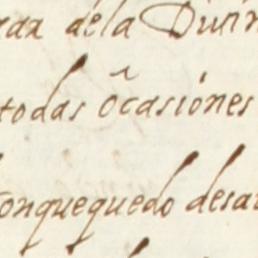 dela Diuin
todas ócasiónes
conquequedo desa